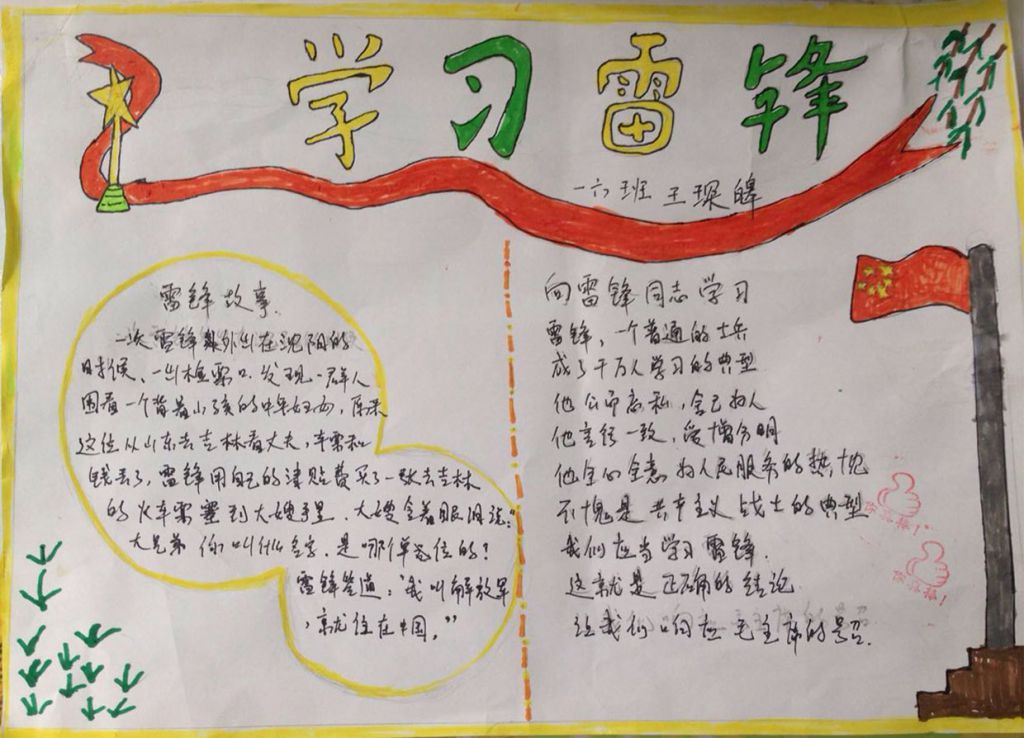 学习雷锋
一六班 王琛皞
雷锋故事.
一次雷锋外出在沈阳的
时候、一出检票口.发现一群人
围着一个背着小孩的中年妇女，原来
这位从山东去吉林看丈夫，车票和
钱丢了，雷锋用自己的津贴费买了一张去吉林
的火车票塞到大嫂手里、大嫂含着眼泪说："
大兄弟 你叫什么名字.是哪个单位的？
雷锋答道："我叫解放军
，就住在中国，"
向雷锋同志学习
雷锋，一个普通的士兵
成了千万人学习的典型
他公而忘私，舍己为人
他言行一致，爱憎分明
他全心全意为人民服务的热忱
不愧是共产主义战士的典型
我们应当学习雷锋.
这就是正确的结论
让我们响应毛主席的号召.
你最棒！
你最棒！